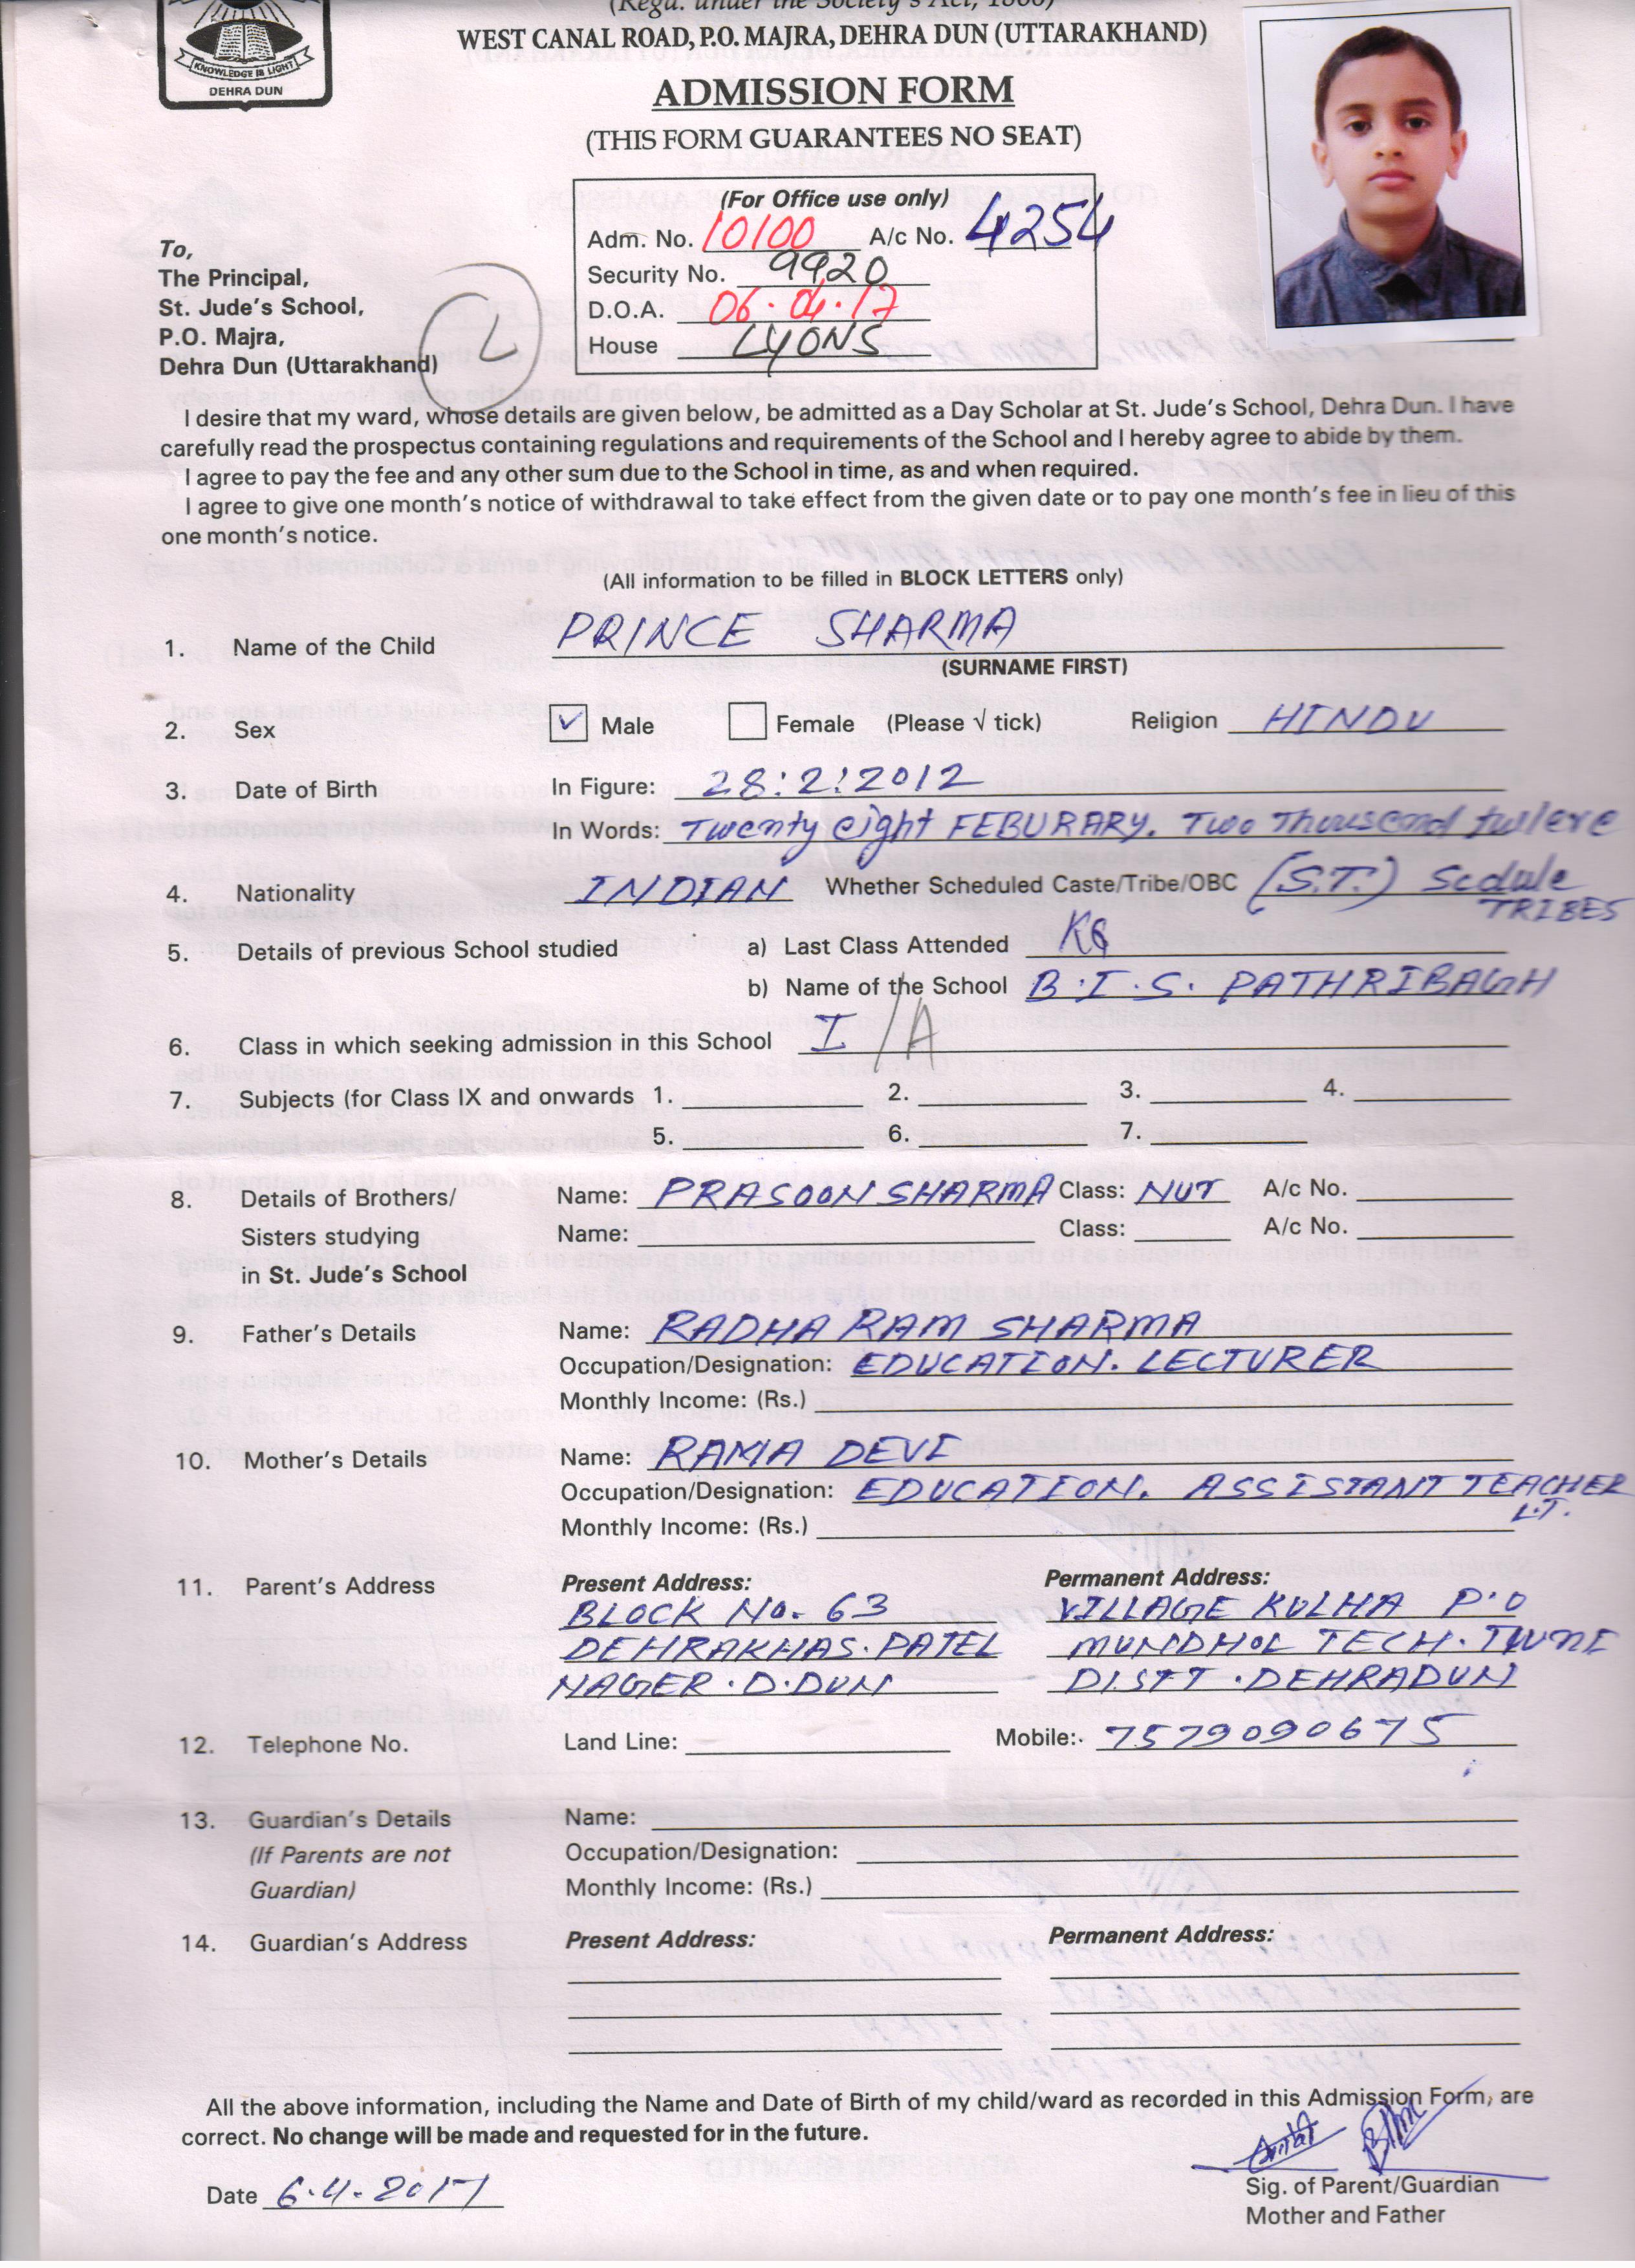 (Regd. under the Society's Act, 1860)
WEST CANAL ROAD, P.O. MAJRA, DEHRA DUN (UTTARAKHAND)
KNOWLEDGE IS LIGHT
DEHRA DUN
ADMISSION FORM
(THIS FORM GUARANTEES NO SEAT)
(For Office use only)
Adm. No. 10100 A/c No. 4254
Security No. 9920
D.O.A. 06.04.17
House LYONS
To,
The Principal,
St. Jude's School,
P.O. Majra,
Dehra Dun (Uttarakhand)
I desire that my ward, whose details are given below, be admitted as a Day Scholar at St. Jude's School, Dehra Dun. I have
carefully read the prospectus containing regulations and requirements of the School and I hereby agree to abide by them.
I agree to pay the fee and any other sum due to the School in time, as and when required.
I agree to give one month's notice of withdrawal to take effect from the given date or to pay one month's fee in lieu of this
one month's notice.
(All information to be filled in BLOCK LETTERS only)
1. Name of the Child PRINCE SHARMA
(SURNAME FIRST)
2. Sex ✓ Male Female (Please √ tick) Religion HINDU
3. Date of Birth In Figure: 28:2:2012
In Words: Twenty eight FEBURARY. Two Thousend twlere
4. Nationality INDIAN Whether Scheduled Caste/Tribe/OBC (S.T.) Scdule
TRIBES
5. Details of previous School studied a) Last Class Attended KG
b) Name of the School B.I.S. PATHRIBAGH
6. Class in which seeking admission in this School I /A
7. Subjects (for Class IX and onwards 1. 2. 3. 4.
5. 6. 7.
8. Details of Brothers/ Name: PRASOON SHARMA Class: NUT A/c No.
Sisters studying Name: Class: A/c No.
in St. Jude's School
9. Father's Details Name: RADHA RAM SHARMA
Occupation/Designation: EDUCATION. LECTURER
Monthly Income: (Rs.)
10. Mother's Details Name: RAMA DEVI
Occupation/Designation: EDUCATION. ASSISTANT TEACHER
L.T.
Monthly Income: (Rs.)
11. Parent's Address Present Address: Permanent Address:
BLOCK No. 63 VILLAGE KULHA P.O
DEHRAKHAS. PATEL MUNDHOL TECH. TWUNE
NAGER . D. DUN DISTT . DEHRADUN
12. Telephone No. Land Line: Mobile:. 7579090675
13. Guardian's Details Name:
(If Parents are not Occupation/Designation:
Guardian) Monthly Income: (Rs.)
14. Guardian's Address Present Address: Permanent Address:
All the above information, including the Name and Date of Birth of my child/ward as recorded in this Admission Form, are
correct. No change will be made and requested for in the future.
Date 6.4.2017
Sig. of Parent/Guardian
Mother and Father